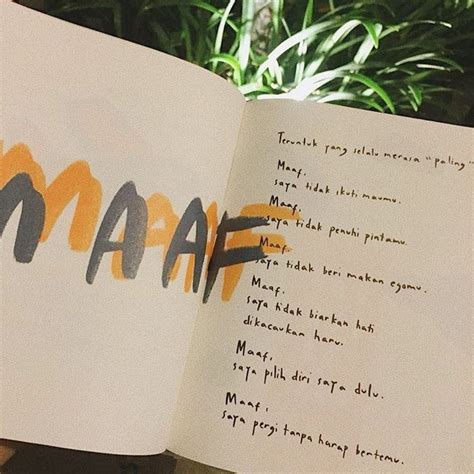 MAAF
Teruntuk yang selalu merasa "paling"
Maaf,
saya tidak ikuti maumu.
Maaf,
saya tidak penuhi pintamu.
Maaf,
saya tidak beri makan egomu.
Maaf,
saya tidak biarkan hati
dikacaukan haru.
Maaf,
saya pilih diri saya dulu.
Maaf,
saya pergi tanpa harap bertemu.